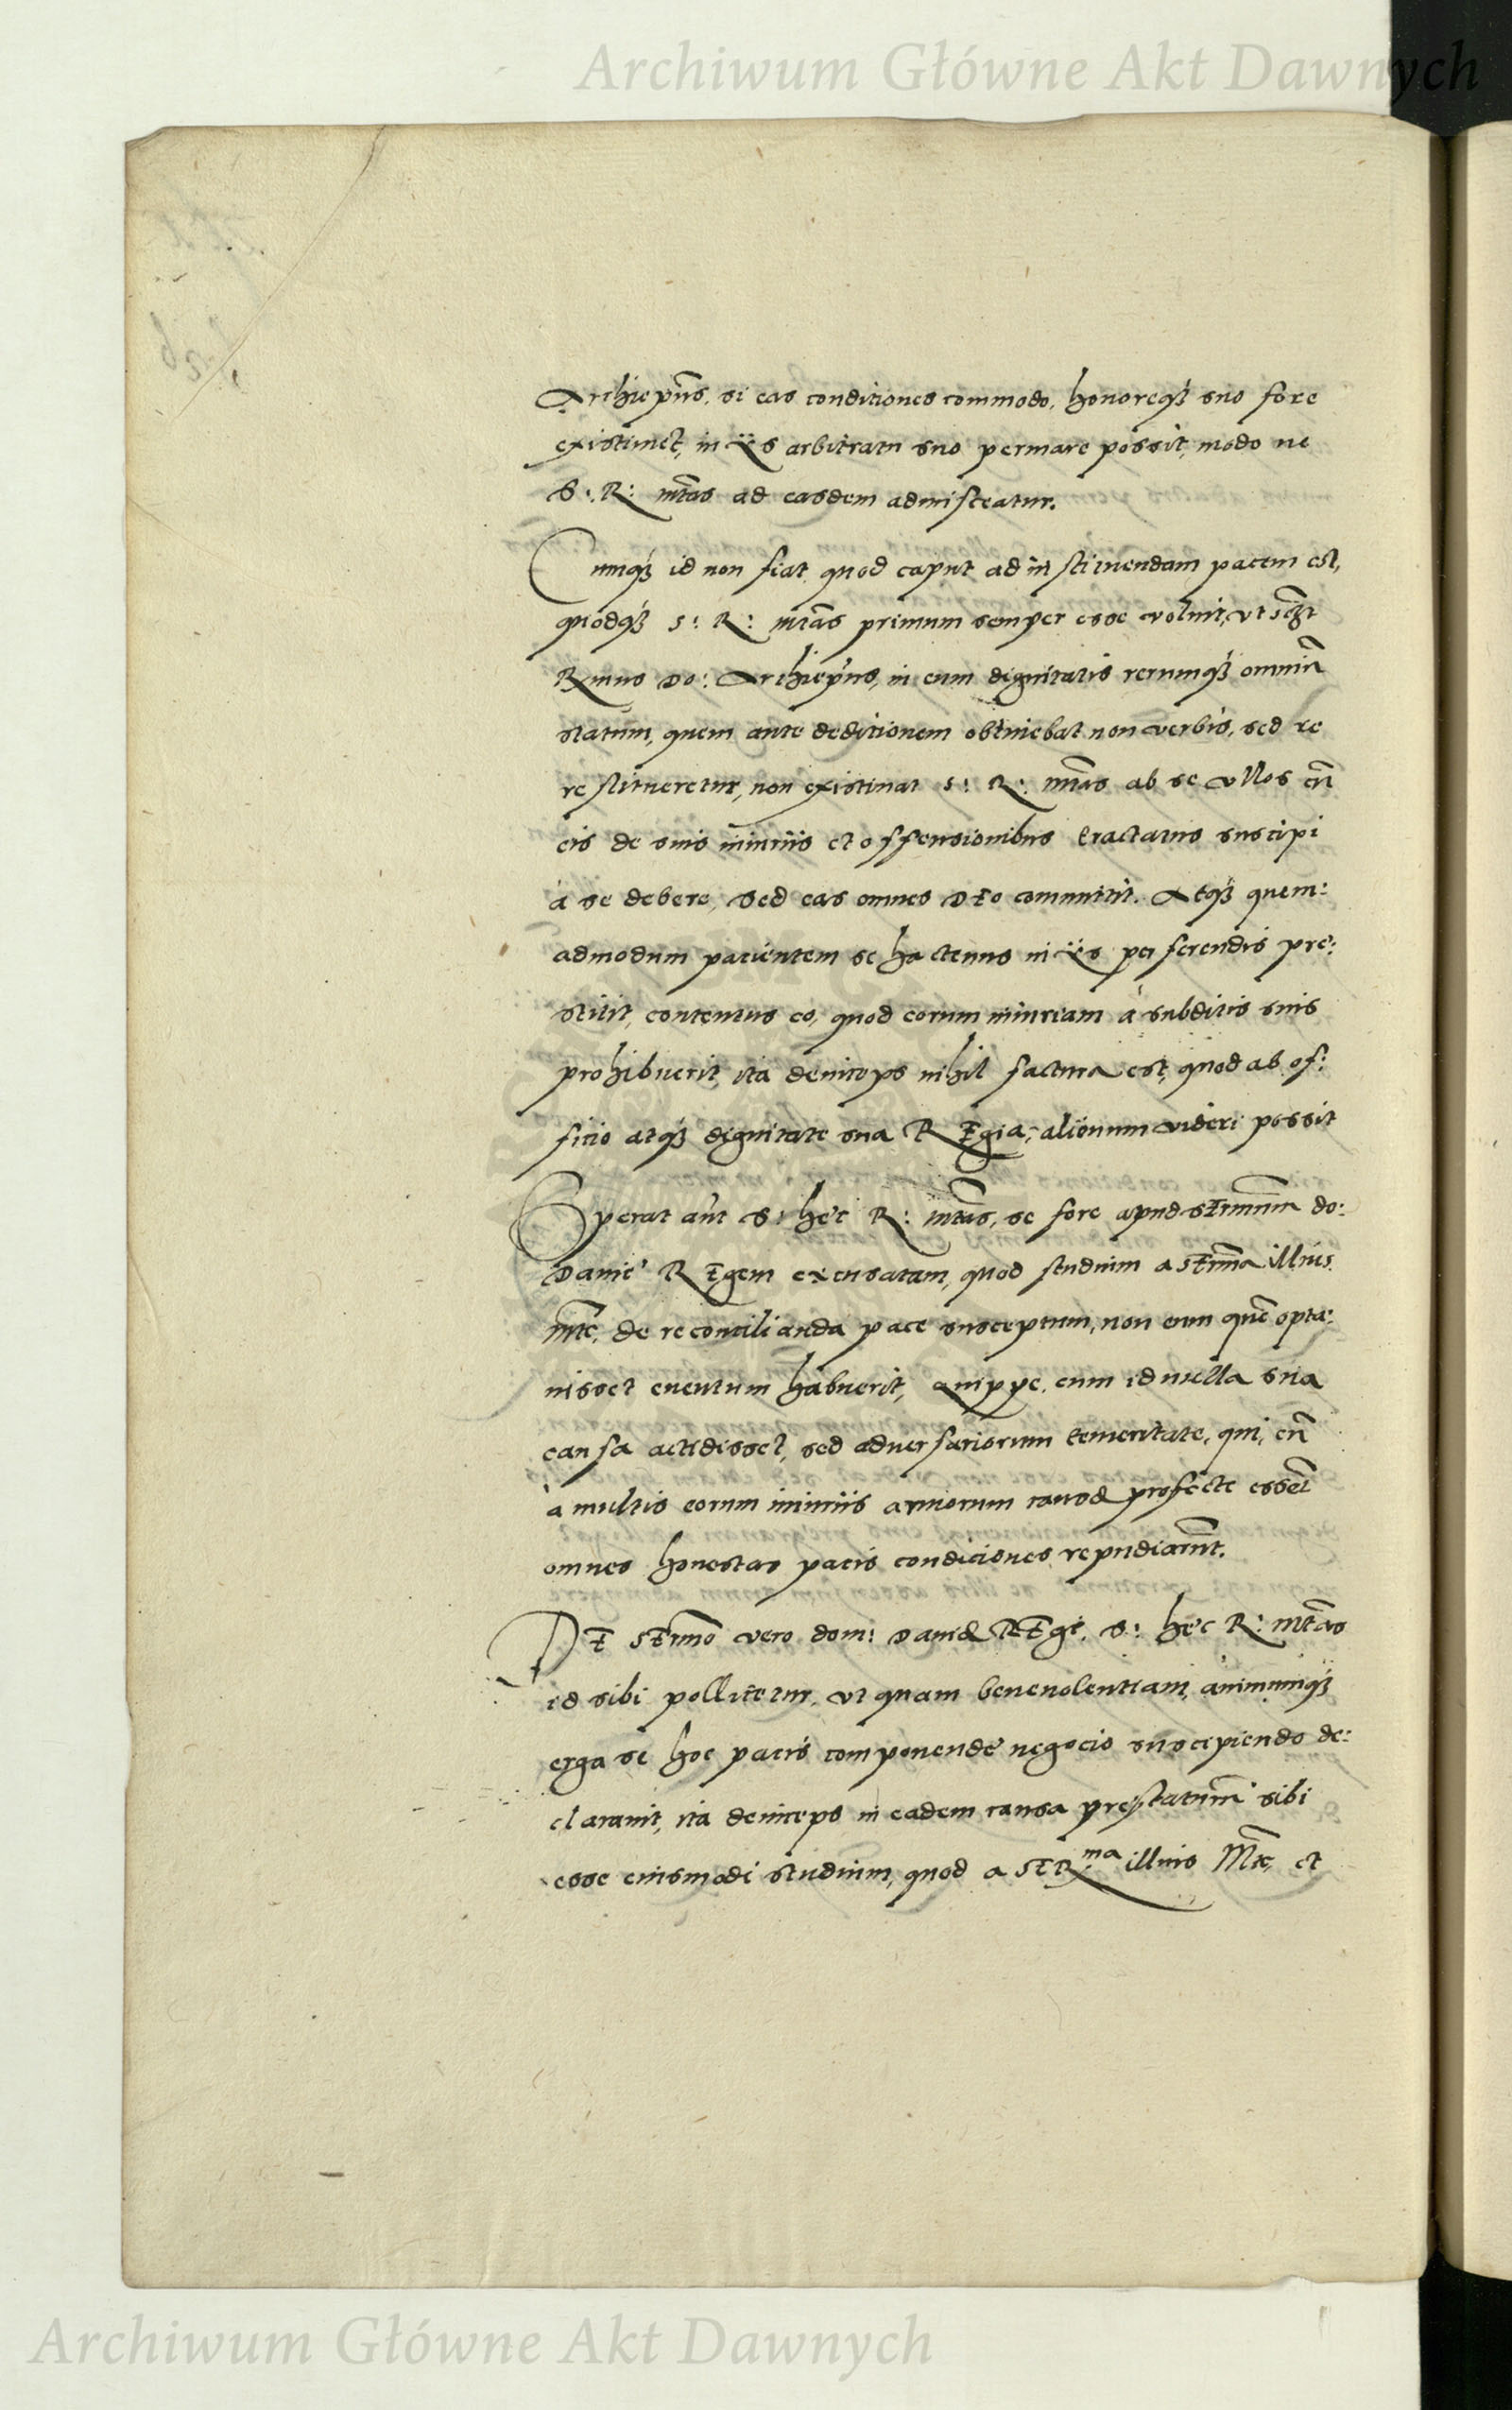 Archiwum Główne Akt Dawnych
Archiepũs, si eas conditiones commodo, honoreq₃ suo fore
existimet, in ijs arbitratu suo permare possit, modo ne
S: R: mtãs ad easdem admisceatur.
Cumq₃ id non fiat, quod caput ad instituendam pacem est,
quodq₃ S: R: mtãs primum semper esse voluit, vt
Rmus Do: Archiepũs, in eum dignitatis rerumq₃ omniũ
statum, quem ante deditionem obtinebat non verbis, sed re
restitueretur, non existimat S: R: mtãs ab se vllos cũ
eis de suis iniuriis et offensionibus tractatus suscipi
à se debere, sed eas omnes DEo committit. Atq₃ quem:
admodum patientem se hactenus in ijs perferendis pre:
stitit, contentus eo, quod eorum iniuriam à subditis suis
prohibuerit, ita deinceps nihil factura est, quod ab of:
ficio atq₃ dignitate sua REgia, alienum videri possit
Sperat aũt S: hec R: mtãs, se fore apud sErmũm do:
Danie REgem excusatam, quod studium a sErmã illius
mte, de reconcilianda pace susceptum, non eum quẽ opta:
uisset euentum habuerit, quippe, cum id nulla sua
causa accidisset, sed aduersariorum temeritate, qui, cũ
à multis eorum iniuriis armorum causę profecte essẽt
omnes honestas pacis condiciones repudiarũt.
DE sErmõ vero dom: Danię REge, S: hec R: Mtãs
id sibi pollicetur, vt quam beneuolentiam, animumq₃
erga se hoc pacis componende negocio suscipiendo de:
clarauit, ita deinceps in eadem causa prestaturũ sibi
esse eiusmodi studium, quod a SER^ma illius Mte, et
Archiwum Główne Akt Dawnych